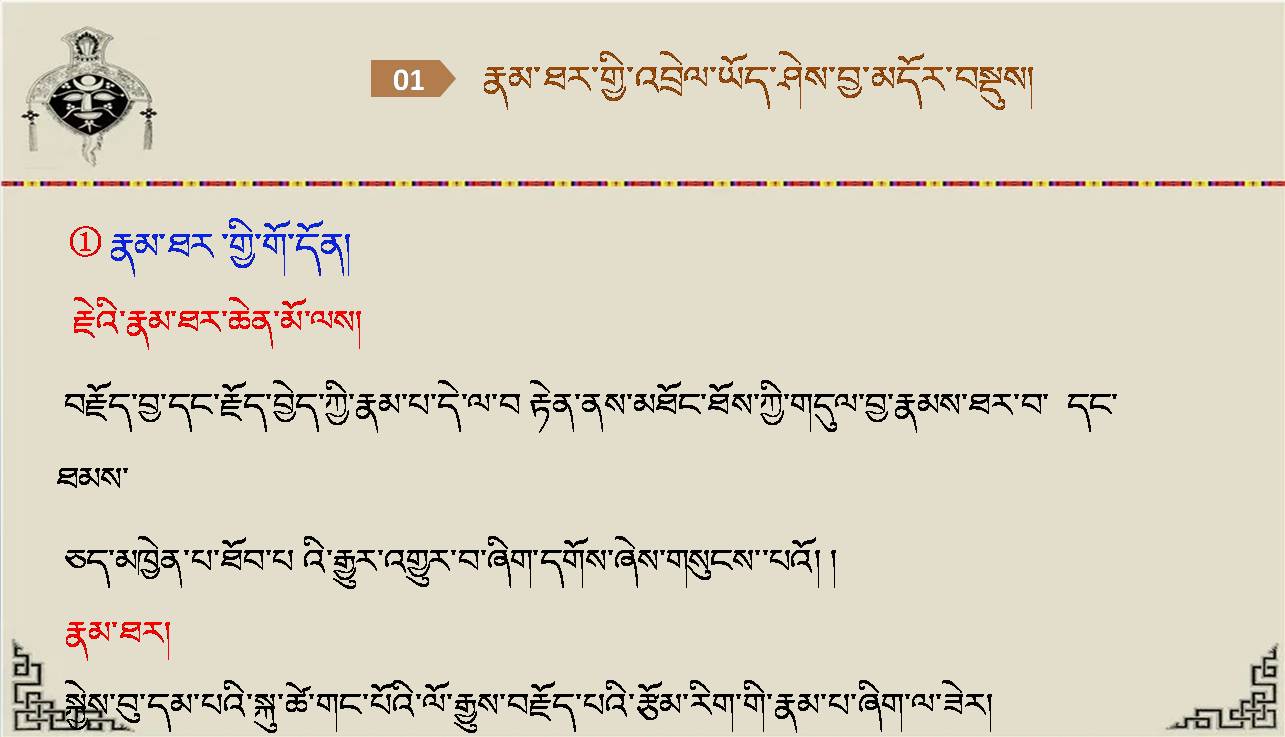 01 རྣམ་ཐར་གྱི་འབྲེལ་ཡོད་ཤེས་བྱ་མདོར་བསྡུས།
① རྣམ་ཐར་གྱི་གོ་དོན།
རྗེའི་རྣམ་ཐར་ཆེན་མོ་ལས།
བརྗོད་བྱ་དང་རྗོད་བྱེད་ཀྱི་རྣམ་པ་དེ་ལ་བ རྟེན་ནས་མཐོང་ཐོས་ཀྱི་གདུལ་བྱ་རྣམས་ཐར་བ་ དང་
ཐམས་
ཅད་མཁྱེན་པ་ཐོབ་པ འི་རྒྱུར་འགྱུར་བ་ཞིག་དགོས་ཞེས་གསུངས་་པའོ། །
རྣམ་ཐར།
སྐྱེས་བུ་དམ་པའི་སྐུ་ཚེ་གང་པོའི་ལོ་རྒྱུས་བརྗོད་པའི་རྩོམ་རིག་གི་རྣམ་པ་ཞིག་ལ་ཟེར།